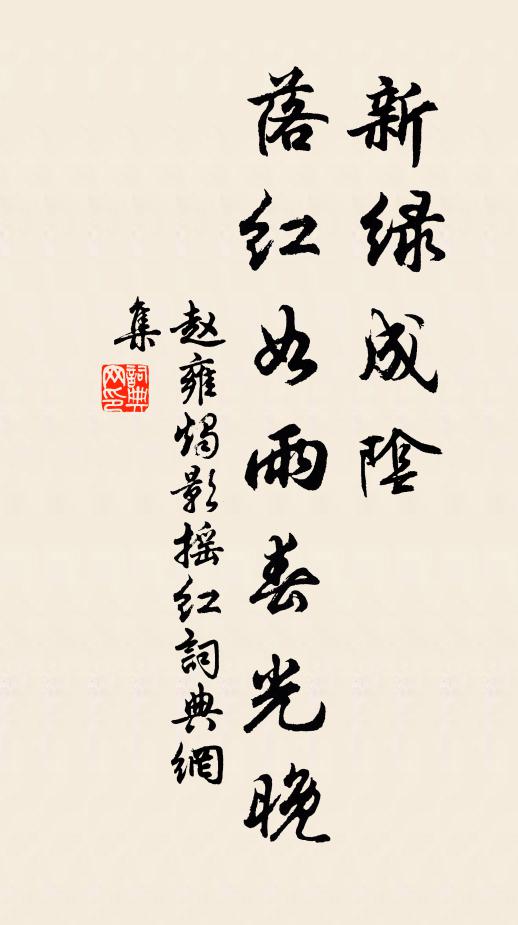 新绿成陰
落红如雨春光晚
赵雍燭影摇红詞典網
集
詞典
网印